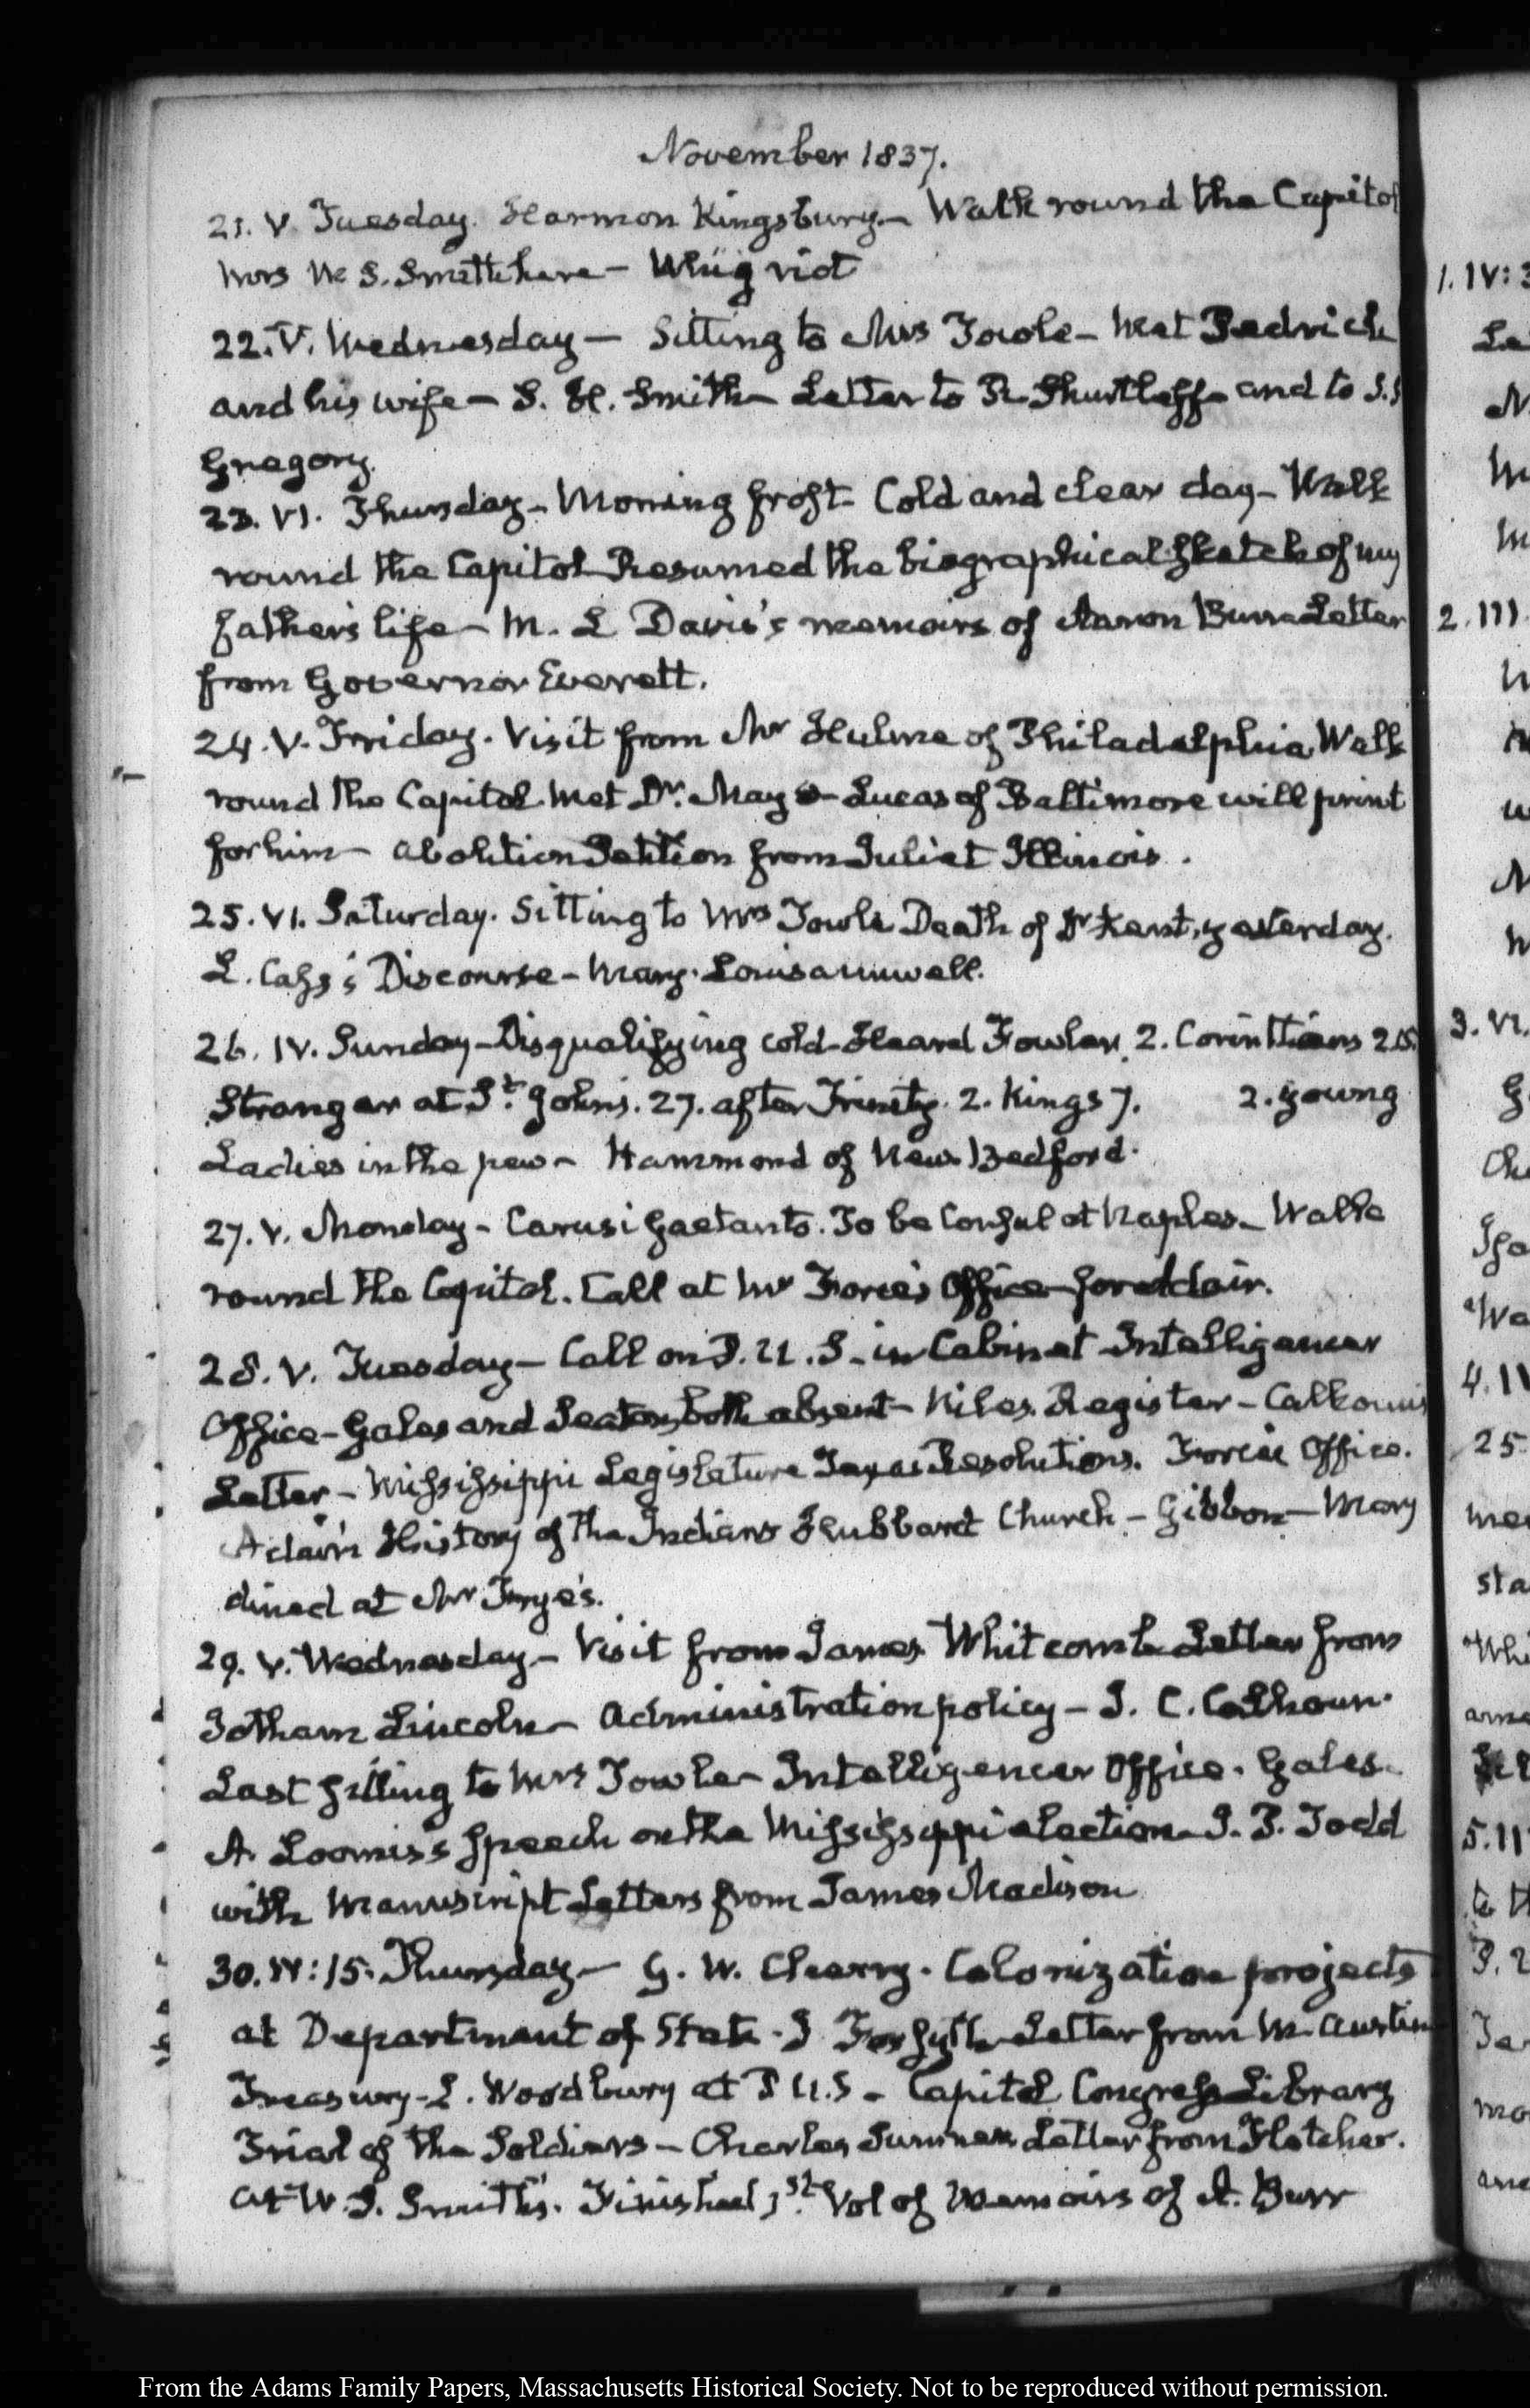 November 1837.
21. V. Tuesday. Harmon Kingsbury – Walk round the Capitol
Mrs W. S. Smith here – Whig riot
22. V. Wednesday – Sitting to Mrs Towle – Met Fedrick
and his wife – S. H. Smith – Letter to Shurtleff – and to S.
Gregory.
23. VI. Thursday – Morning frost – Cold and clear day – Walk
round the Capitol – Resumed the biographical sketch of my
father's life – M. L Davis's memoirs of Aaron Burr – Letter
from Governor Everett.
24. V. Friday. Visit from Mr Hulme of Philadelphia Walk
round the Capitol Met Dr. Mayo – Lucas of Baltimore will print
for him – abolition Petition from Juliet Illinois.
25. VI. Saturday. Sitting to Mrs Towle Death of Dr Kent, yesterday.
L. Cass's Discourse – Mary-Louisa unwell.
26. IV. Sunday – Disqualifying cold – Heard Fowler. 2. Corinthians
Stranger at St. John's. 27. after Trinity. 2. Kings 7. 2. young
Ladies in the pew – Hammond of New Bedford.
27. V. Monday – Carusi Gaetano. To be Consul at Naples – Walk
round the Capitol. Call at Mr Force's Office – for
28. V. Tuesday – Call on P. U. S. – in Cabinet – Intelligencer
Office – Gales and Seaton, both absent – Niles Register – Calhoun's
Letter – Mississippi Legislature Texas Resolutions. Force's Office.
Adair's History of the Indians Hubbard Church – Gibbon – Mary
dined at Mr Frye's.
29. V. Wednesday – Visit from James Whitcomb – Letter from
Jotham Lincoln – administration policy – J. C. Calhoun.
Last sitting to Mrs Towle – Intelligencer Office. Gales –
A. Loomis's speech on the Mississippi election – J. P. Todd
with Manuscript Letters from James Madison
30. IV:15. Thursday – G. W. Cherry. Colonization projects
at Department of State. J Forsyth – Letter from W. Austin
Treasury – L. Woodbury at P U.S – Capitol Congress Library
Trial of the Soldiers – Charles Sumner Letter from Fletcher.
At W. S. Smith's. Finished 1st. Vol of Memoirs of A. Burr
From the Adams Family Papers, Massachusetts Historical Society. Not to be reproduced without permission.